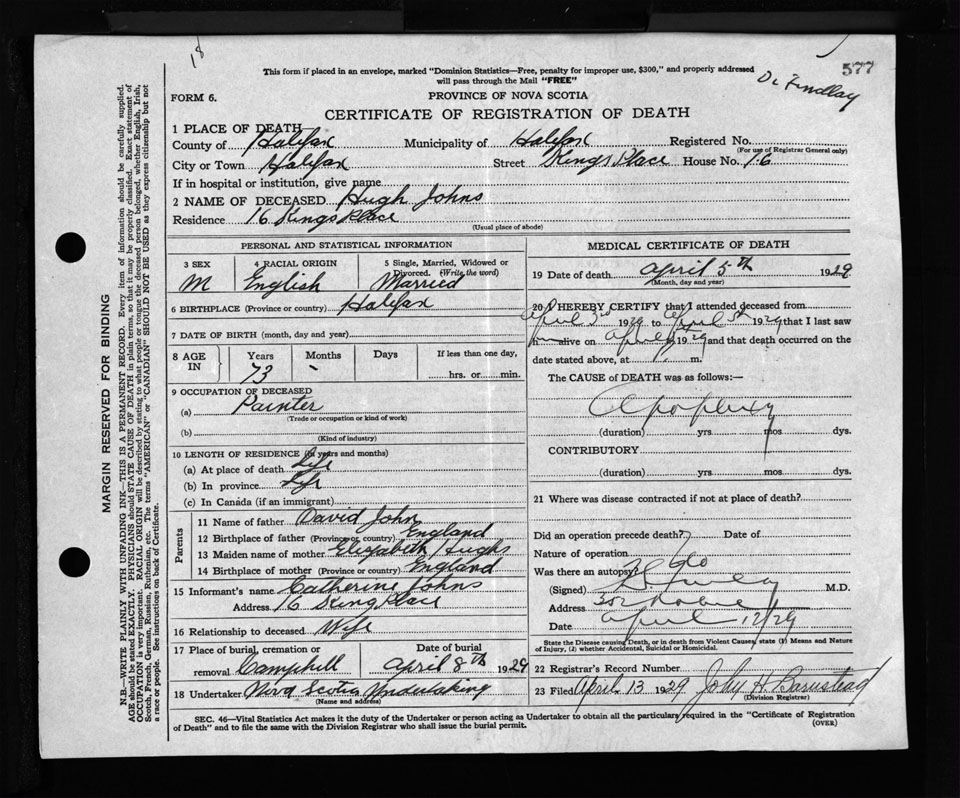 18
577
This form if placed in an envelope, marked "Dominion Statistics—Free, penalty for improper use, $300," and properly addressed
will pass through the Mail "FREE"
Dr Findlay
FORM 6.
PROVINCE OF NOVA SCOTIA
CERTIFICATE OF REGISTRATION OF DEATH
1 PLACE OF DEATH
County of Halifax Municipality of Halifax Registered No.
(For use of Registrar General only)
City or Town Halifax Street Kings Place House No. 16
If in hospital or institution, give name
2 NAME OF DECEASED Hugh Johns
Residence 16 Kings Place
(Usual place of abode)
PERSONAL AND STATISTICAL INFORMATION
3 SEX 4 RACIAL ORIGIN 5 Single, Married, Widowed or Divorced. (Write the word)
M English Married
6 BIRTHPLACE (Province or country) Halifax
7 DATE OF BIRTH (month, day and year)
8 AGE IN Years Months Days If less than one day,
73 - hrs. or min.
9 OCCUPATION OF DECEASED
(a) Painter
(Trade or occupation or kind of work)
(b)
(Kind of industry)
10 LENGTH OF RESIDENCE (In years and months)
(a) At place of death Life
(b) In province Life
(c) In Canada (if an immigrant)
Parents
11 Name of father David John
12 Birthplace of father (Province or country) England
13 Maiden name of mother Elizabeth Hughs
14 Birthplace of mother (Province or country) England
15 Informant's name Catherine Johns
Address 16 Kings Place
16 Relationship to deceased Wife
17 Place of burial, cremation or removal Camphill Date of burial April 8th 1929
18 Undertaker Nova Scotia Undertaking
(Name and address)
MEDICAL CERTIFICATE OF DEATH
19 Date of death April 5th 1929
(Month, day and year)
20 I HEREBY CERTIFY that I attended deceased from
April 3rd 1929 to April 5th 1929 that I last saw
him alive on April 1929 and that death occurred on the
date stated above, at m.
The CAUSE of DEATH was as follows:—
Apoplexy
(duration) yrs mos. dys.
CONTRIBUTORY
(duration) yrs mos dys.
21 Where was disease contracted if not at place of death?
Did an operation precede death? Date of
Nature of operation
Was there an autopsy? No
(Signed) M.D.
Address
Date April 12/29
State the Disease causing Death, or in death from Violent Causes, state (1) Means and Nature
of Injury, (2) whether Accidental, Suicidal or Homicidal.
22 Registrar's Record Number
23 Filed April 13 1929 John H. Barnstead
(Division Registrar)
SEC. 46—Vital Statistics Act makes it the duty of the Undertaker or person acting as Undertaker to obtain all the particulars required in the "Certificate of Registration
of Death" and to file the same with the Division Registrar who shall issue the burial permit.
(OVER)
MARGIN RESERVED FOR BINDING
N.B.—WRITE PLAINLY WITH UNFADING INK—THIS IS A PERMANENT RECORD. Every item of information should be carefully supplied.
AGE should be stated EXACTLY. PHYSICIANS should STATE CAUSE OF DEATH in plain terms, so that it may be properly classified. Exact statement of
OCCUPATION is very important. RACIAL ORIGIN will be described by stating to what people or tongue the deceased person belonged, whether English, Irish,
Scotch, French, German, Russian, Ruthenian, etc. The terms "AMERICAN" or "CANADIAN" SHOULD NOT BE USED as they express citizenship but not
a race or people. See instructions on back of Certificate.